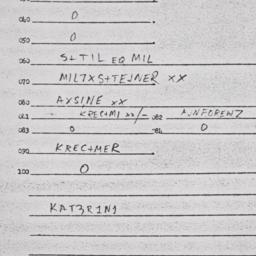 040 0
050 0
060 S+TIL EQ MIL
070 MIL7XS+TEJNER XX
080 AXSINE XX
081 KREC+MI XX/- 082 AJNFORENZ
083 0 084 0
090 KREC+MER
100 0
KAT3R1N1